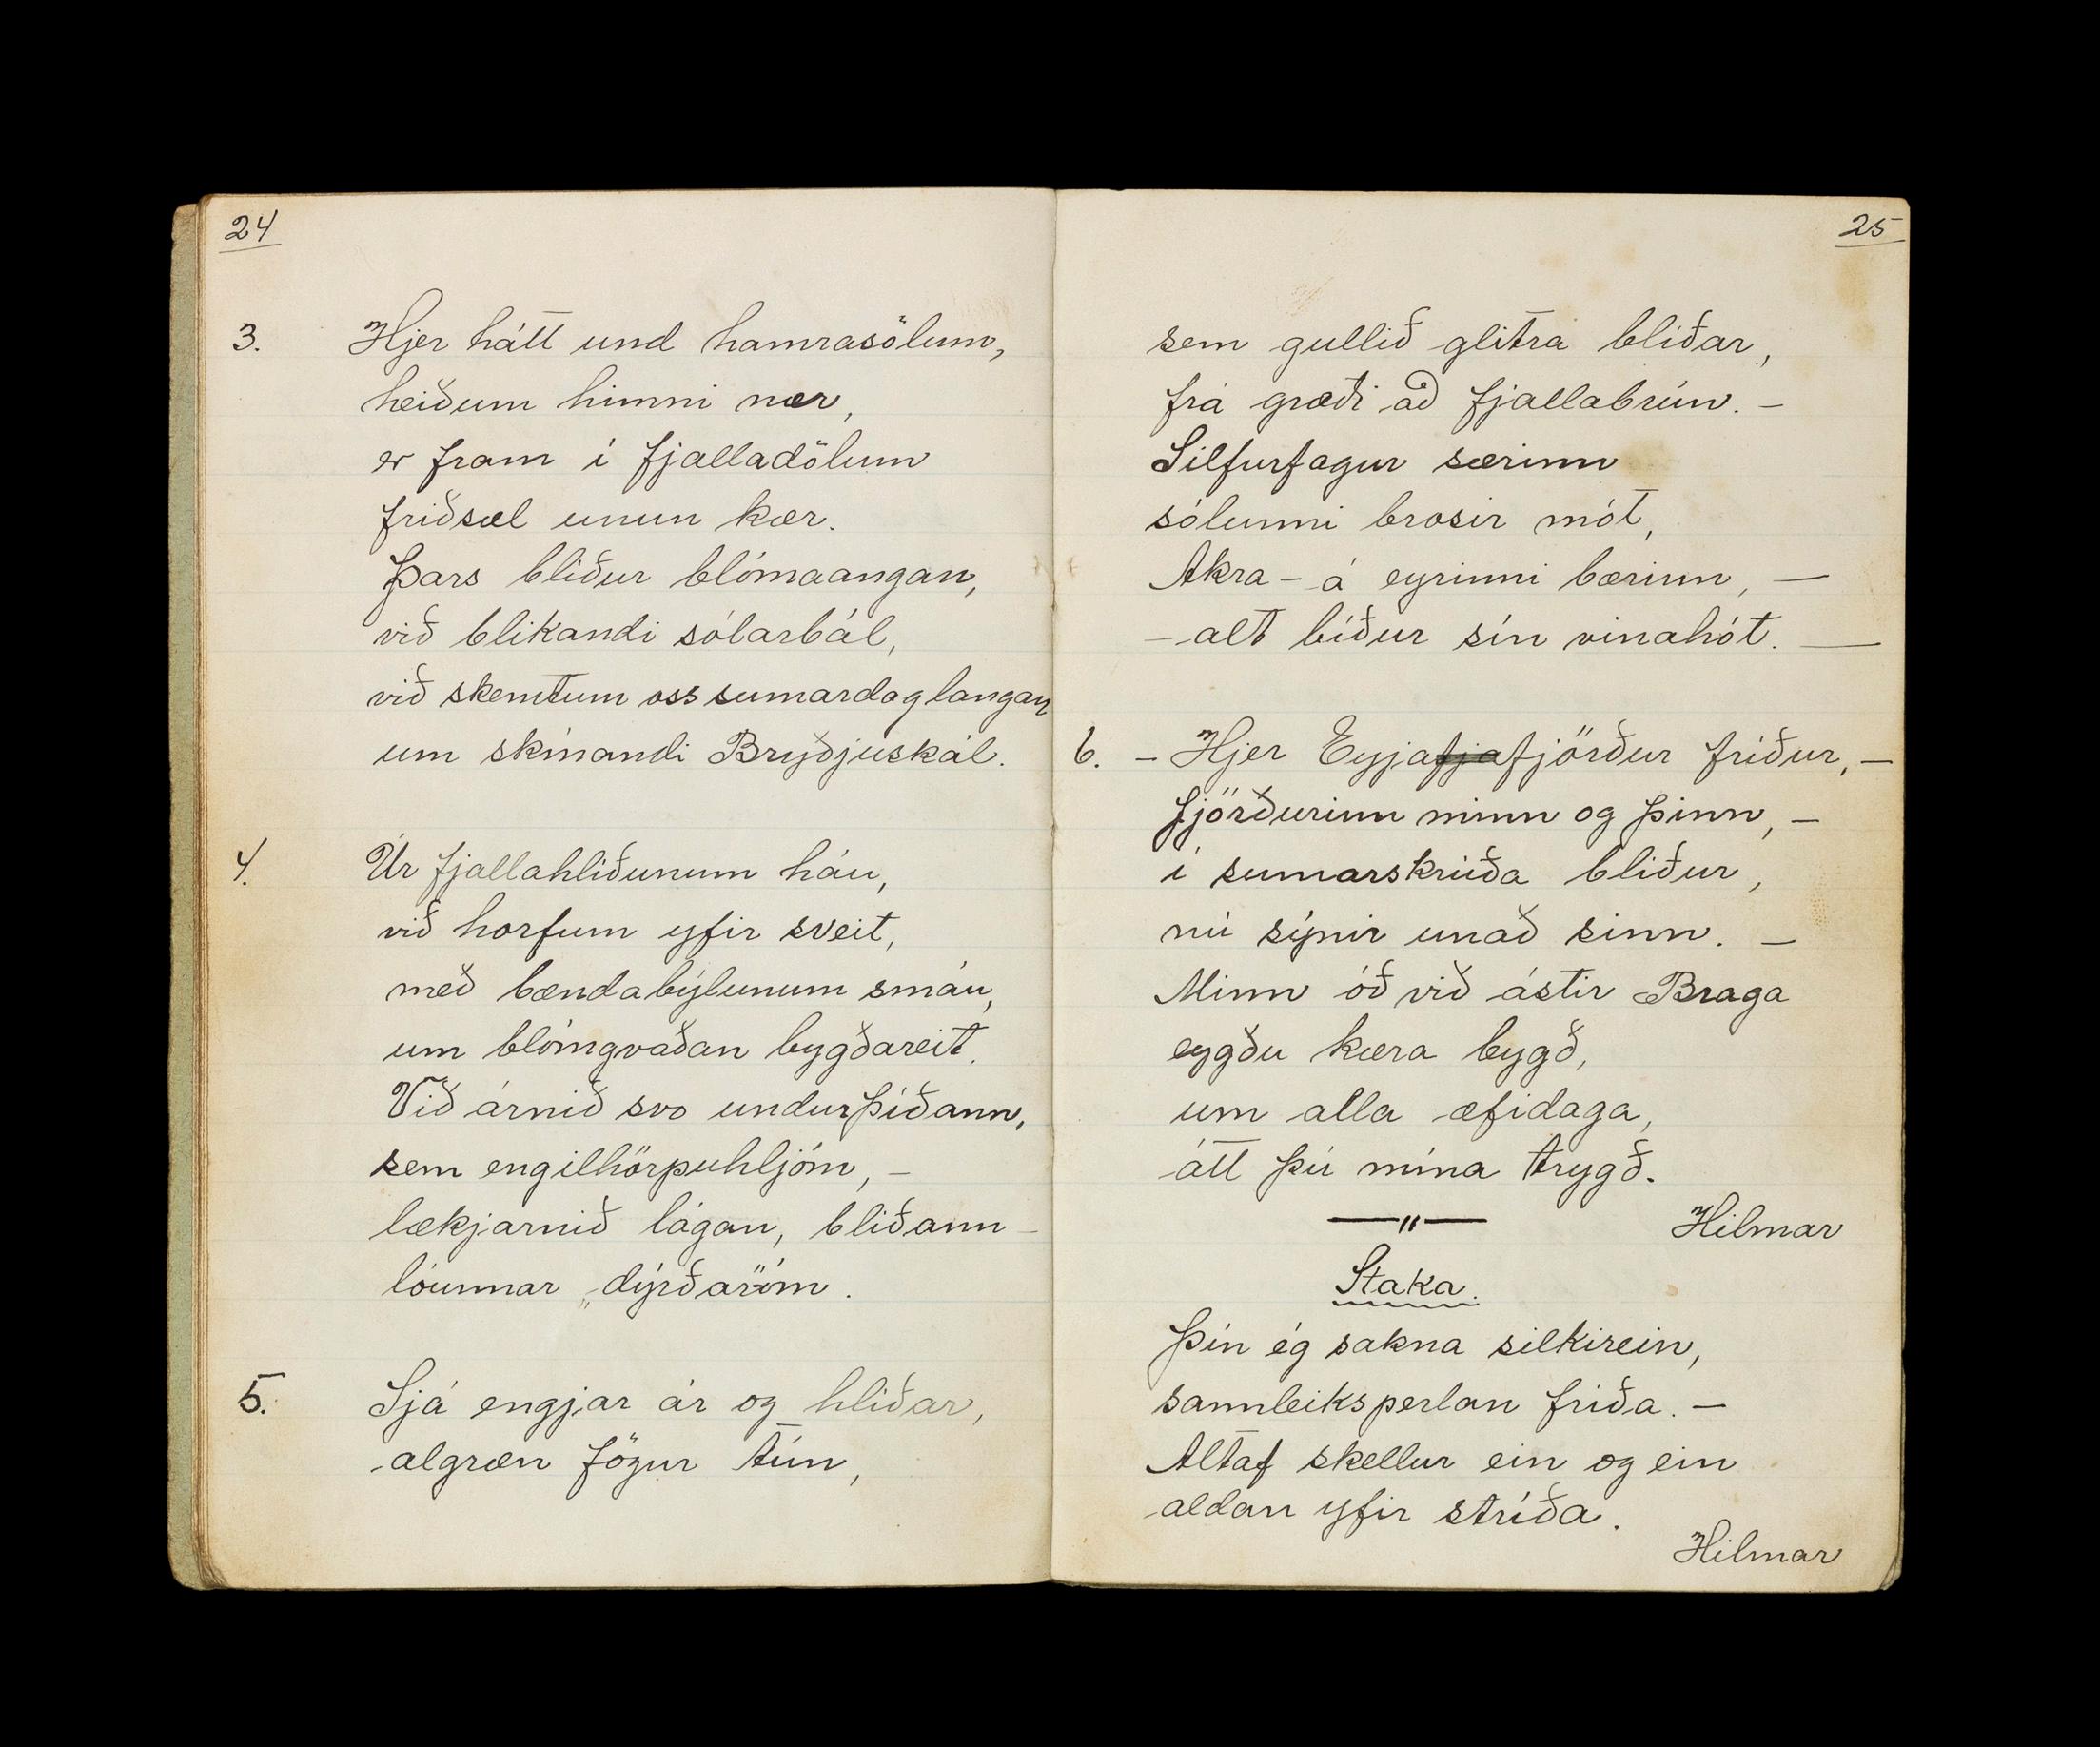 24
3. Hjer hátt und hamrasölum,
heiðum himni nær,
er fram í fjalladölum
friðsæl unun kær.
Þars blíður blómaangan,
við blikandi sólarbál,
við skemtum oss sumardag langan
um skínandi Bryðjuskál.
4. Úr fjallahlíðunum háu,
við horfum yfir sveit,
með bændabýlunum smáu,
um blómgvaðan bygðareit.
Við árnið svo undurþíðann,
sem engilhörpuhljóm, –
lækjarnið lágan, blíðann –
lóunnar „dýrðaróm".
5. Sjá engjar ár og hlíðar,
algræn fögur tún,
25
sem gullið glitra blíðar,
frá græði að fjallabrún. –
Silfurfagur særinn
sólunni brosir mót,
Akra – á eyrinni bærinn, –
– alt bíður sín vinahót. –
6. – Hjer Eyjafjafjörður fríður, –
fjörðurinn minn og þinn, –
í sumarskrúða blíður,
nú sýnir unað sinn. –
Minn óð við ástir Braga
eygðu kæra bygð,
um alla æfidaga,
átt þú mína trygð.
—"— Hilmar
Staka.
Þín ég sakna silkirein,
sannleiksperlan fríða. –
Altaf skellur ein og ein
aldan yfir stríða.
Hilmar